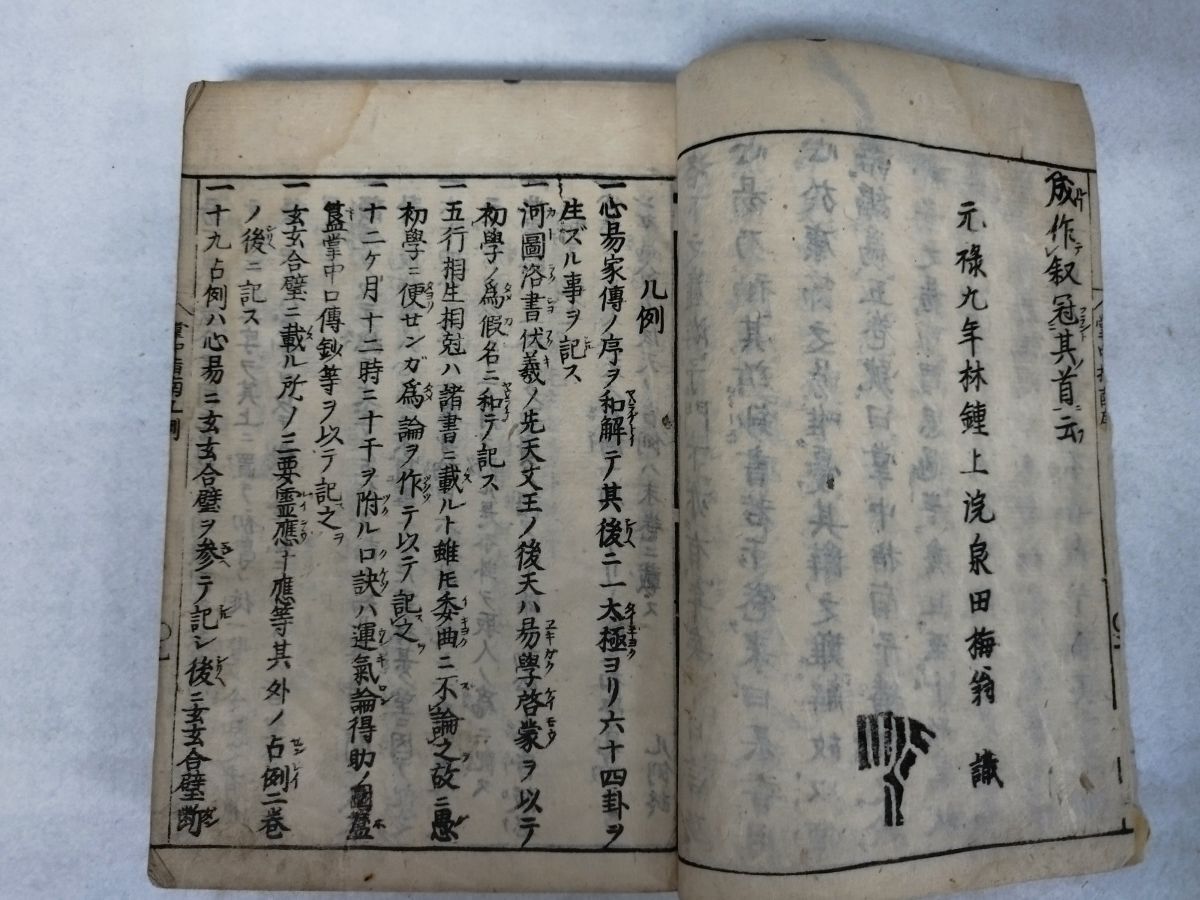 成作叙冠其首云
元禄九年林鐘上浣泉田梅翁 識
凡例
一心易家傳ノ序ヲ和解テ其後ニ一太極ヨリ六十四卦ヲ
生ズル事ヲ記ス
一河圖洛書伏羲ノ先天文王ノ後天ハ易學啓蒙ヲ以テ
初學ノ爲假名ニ和テ記ス
一五行相生相尅ハ諸書ニ載ルト雖モ委曲ニ不論之故ニ愚
初學ニ便センガ爲論ヲ作テ以テ記之
一十二ケ月十二時ニ十干ヲ附ル口訣ハ運氣論得助ノ圖簠
簋掌中口傳鈔等ヲ以テ記之
一玄玄合璧ニ載ル所ノ三要靈應十應等其外ノ占例二巻
ノ後ニ記ス
一十九占例ハ心易ニ玄玄合璧ヲ参テ記シ後ニ玄玄合璧断